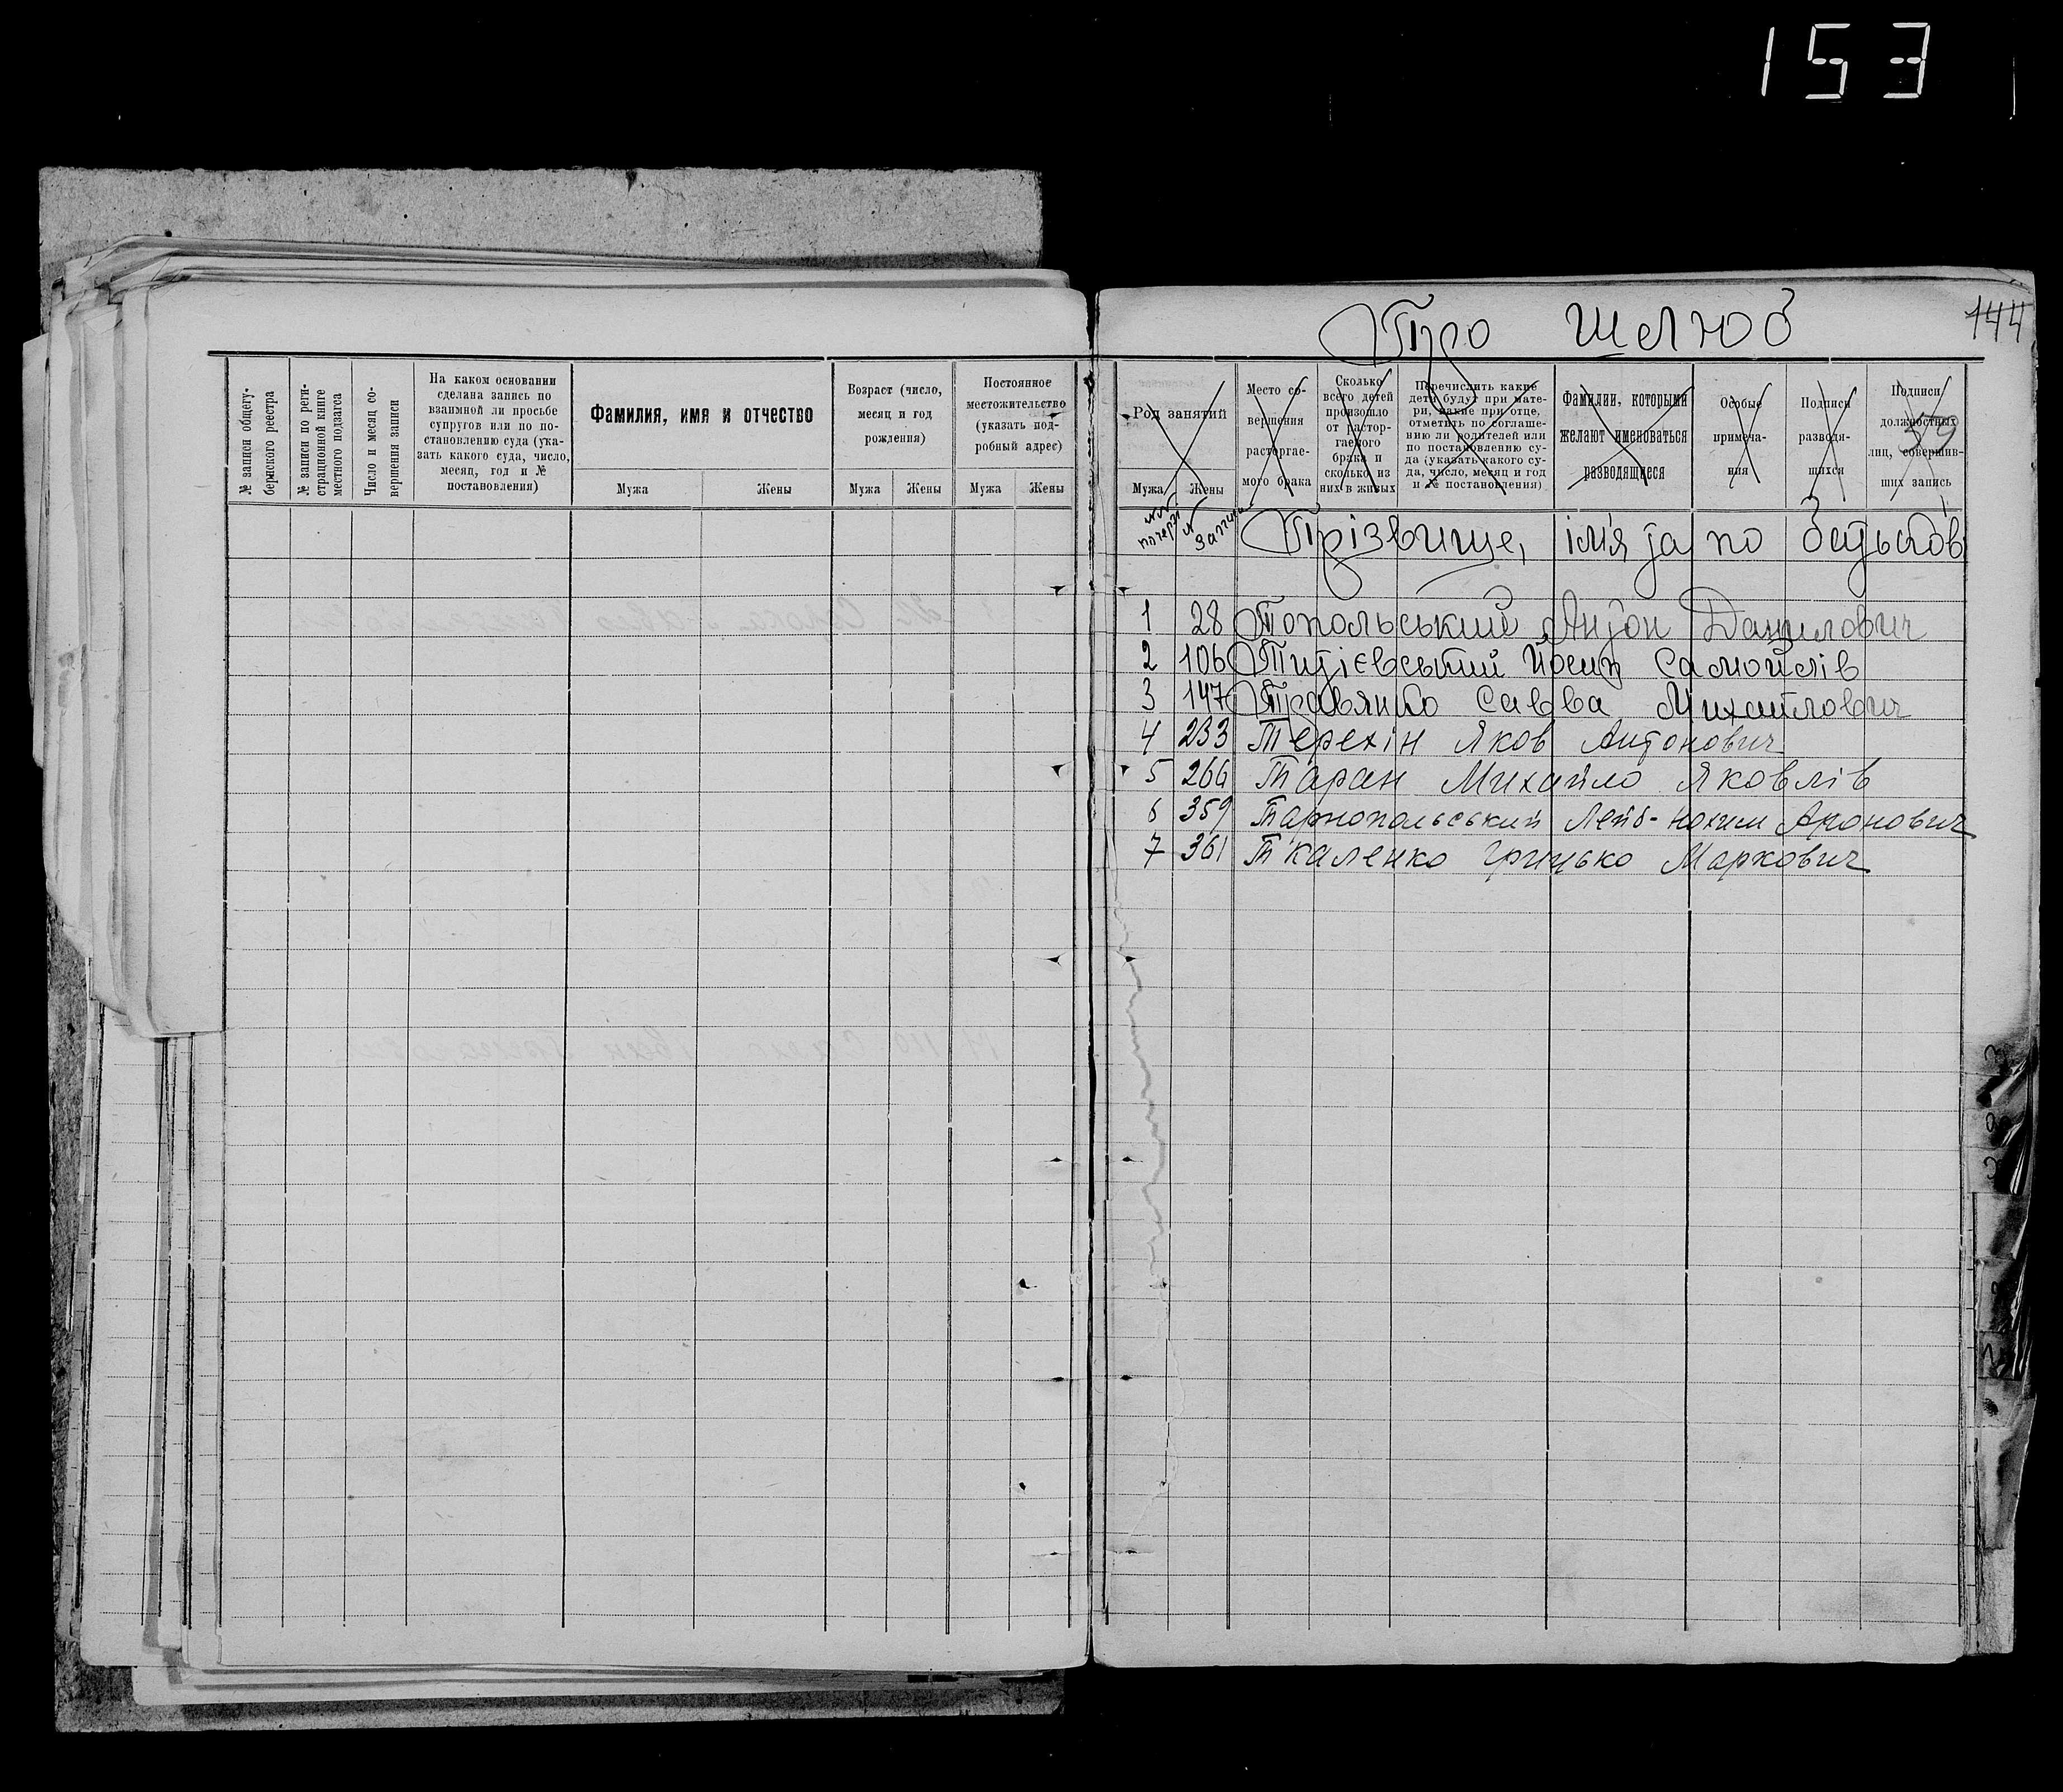 153
Про шлюб
144
№ записи общегу-
бернского реестра
№ записи по реги-
страционной книге
местного подзагса
Число и месяц со-
вершения записи
На каком основании
сделана запись по
взаимной ли просьбе
супругов или по по-
становлению суда (ука-
зать какого суда, число,
месяц, год и №
постановления)
Фамилия, имя и отчество
Мужа Жены
Возраст (число,
месяц и год
рождения)
Мужа Жены
Постоянное
местожительство
(указать под-
робный адрес)
Мужа Жены
Род занятий
Мужа Жены
Место со-
вершения
расторгае-
мого брака
Сколько
всего детей
произошло
от растор-
гаемого
брака и
сколько из
них в живых
Перечислить какие
дети будут при мате-
ри, какие при отце,
отметить по соглаше-
нию ли родителей или
по постановлению су-
да (указать какого су-
да, число, месяц и год
и № постановления)
Фамилии, которыми
желают именоваться
разводящиеся
Особые
примеча-
ния
Подписи
разводя-
щихся
Подписи
должностных
лиц, совершив-
ших запись
59
№№ по черзі
№ запису
Прізвище, ім'я та по батьков
1 28 Топольський Антон Данилович
2 106 Титієвський Йосип Самойлів
3 147 Травянко Савва Михайлович
4 233 Терехін Яков Антонович
5 266 Таран Михайло Яковлів
6 359 Тарнопольський Лейб-Нохим Аронович
7 361 Ткаленко Грицько Маркович